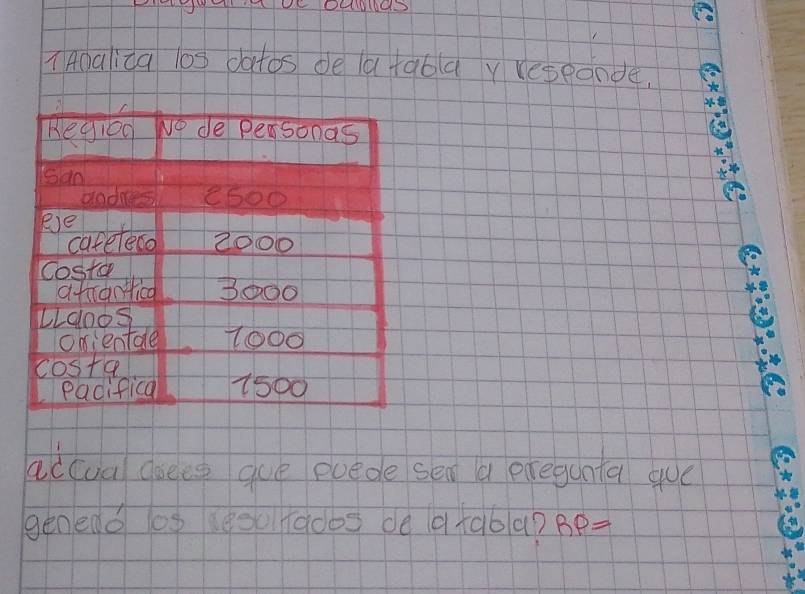 1 Analiza los datos de la tabla y responde.
Región No de personas
San
andres 2500
eje
cafetero 2000
Costa
atlantica 3000
LLanos
orientale 1000
costa
Pacifica 1500
a¿cual crees que puede ser la pregunta que
generó los resultados de la tabla? RP=